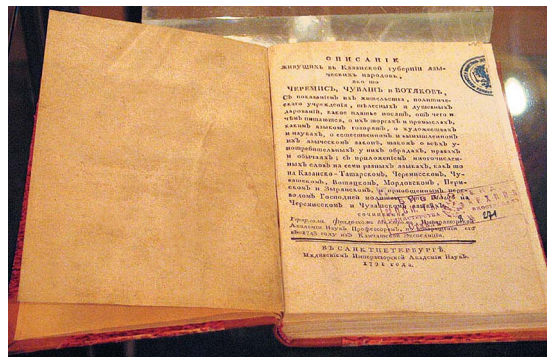 ОПИСАНІЕ
ЖИВУЩИХЪ ВЪ КАЗАНСКОЙ ГУБЕРНІИ ЯЗЫ-
ЧЕСКИХЪ НАРОДОВЪ,
ЯКО ТО
ЧЕРЕМИСЪ, ЧУВАШЪ И ВОТЯКОВЪ,
Съ показаніемъ ихъ жительства, политиче-
скаго учрежденія, тѣлесныхъ и душевныхъ
дарованій, какое платье носятъ, отъ чего и
чѣмъ питаются, о ихъ торгахъ и промыслахъ,
какимъ языкомъ говорятъ, о художествахъ
и наукахъ, о естественномъ и вымышленномъ
ихъ языческомъ законѣ, також о всѣхъ у-
потребительныхъ у нихъ обрядахъ, нравахъ
и обычаяхъ; съ приложеніемъ многочислен-
ныхъ словъ на семи разныхъ языкахъ, какъ то
на Казанско-Татарскомъ, Черемисскомъ, Чу-
вашскомъ, Вотяцкомъ, Мордовскомъ, Перм-
скомъ и Зырянскомъ, и приобщеннымъ пере-
водомъ Господней молитвы Отче нашъ на
Черемисскомъ и Чувашскомъ языкахъ,
сочиненное
Герардомъ Фридрихомъ Императорской
Академіи Наукъ Профессоромъ, по возвращеніи его
въ 1743 году изъ Камчатской Экспедиціи.
ВЪ САНКТПЕТЕРБУРГѢ,
Иждивеніемъ Императорской Академіи Наукъ,
1791 года.
271